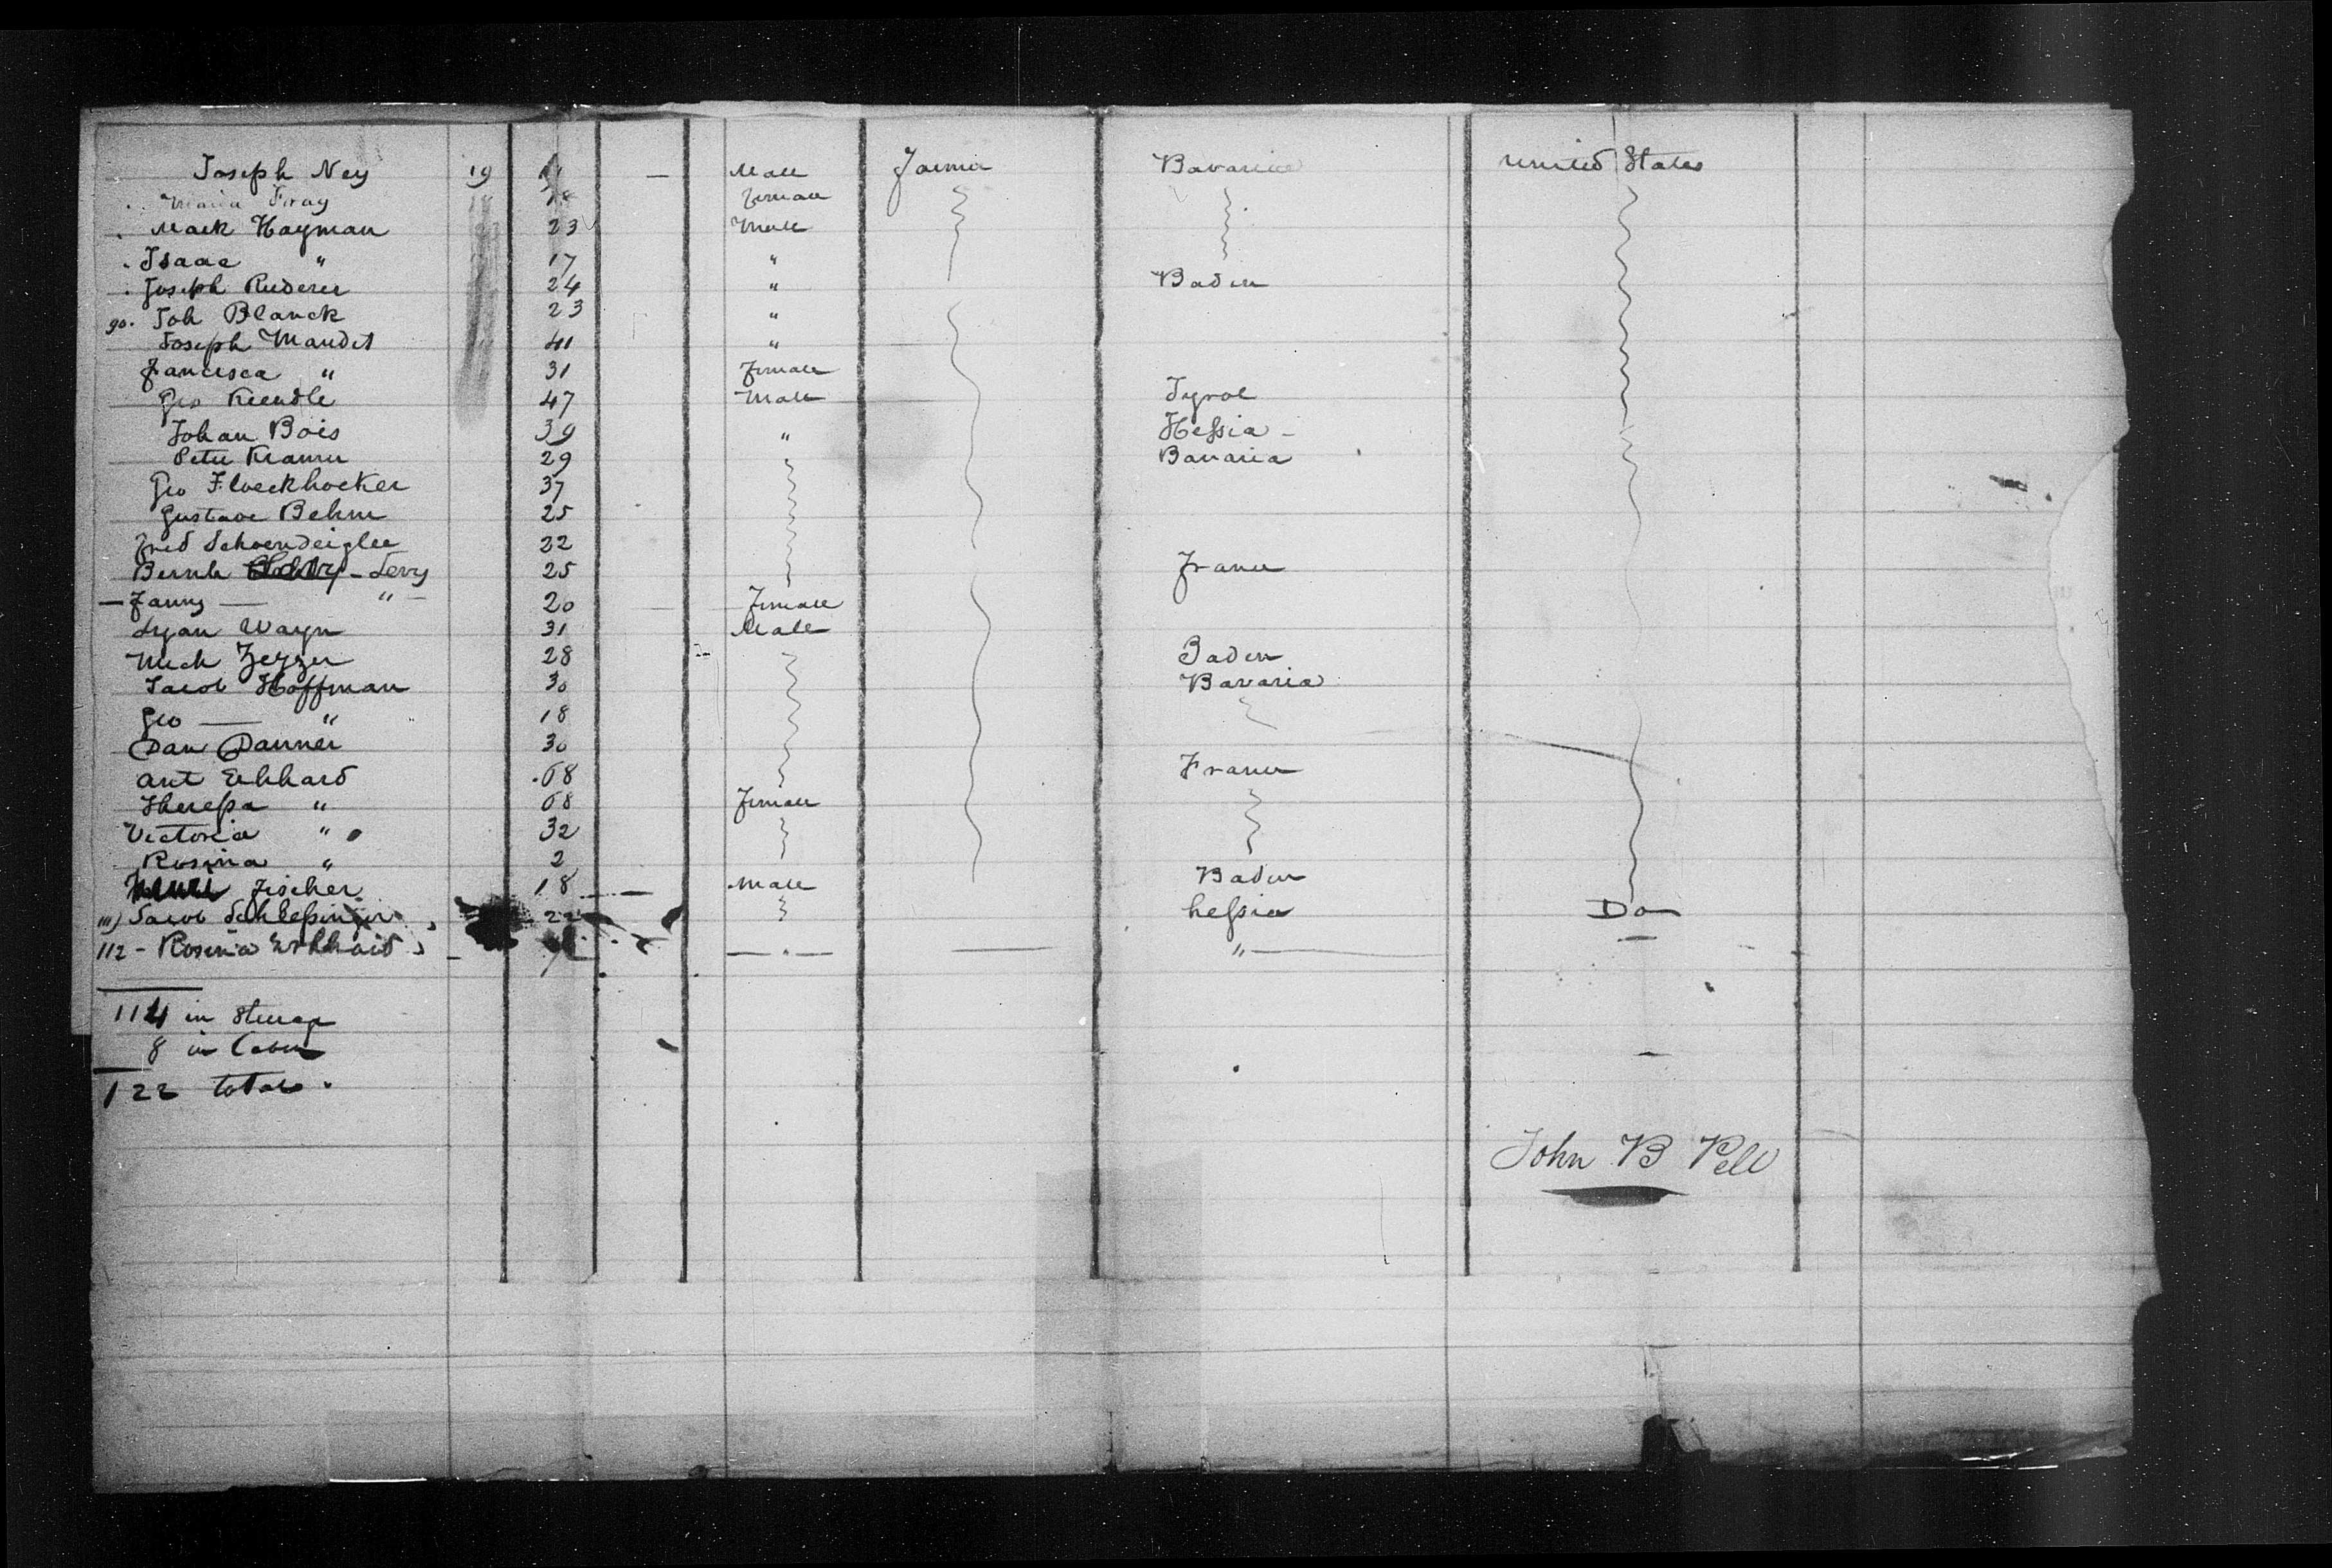 Joseph Ney 19 — Male Farmer Bavaria United States
Maria Fray 18 Female
Mark Hayman 23 Male
Isaac " 17 "
Joseph Ruderer 24 " Baden
90. Joh Blanck 23 "
Joseph Maudit 41 "
Francisca " 31 Female
Geo Kiendle 47 Male Tyrol
Johan Bois 39 " Hessia -
Peter Kramer 29 " Bavaria
Geo Floeckhocker 37
Gustave Behm 25
Fred Schoendeigler 22
Bernh - Levy 25 France
— Fanny — " - 20 Female
Lyan Wayn 31 Male
Mich Zeyzer 28 Baden
Jacob Hoffman 30 Bavaria
Geo — " 18
Dan Danner 30
Ant Erhhard 68 France
Theressa " 68 Female
Victoria " 32
Rosina " 2
Fischer 18 — Male Baden
111) Jacob Schlessinger 22 hessia Do
112 - Rosina Erhhard — " — — " —
114 in Steerage
8 in Cabin
122 total.
John B Pell